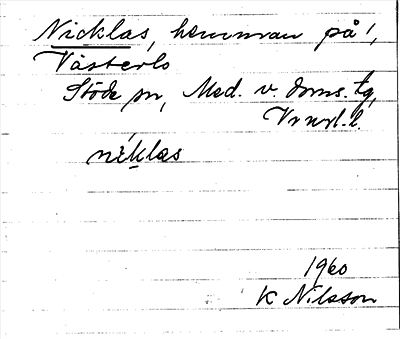 Nicklas, hemman på!,
Västerlo
Stöde sn, Med. v. doms. tg,
Vrnrl. l.
niklas
1960
K Nilsson